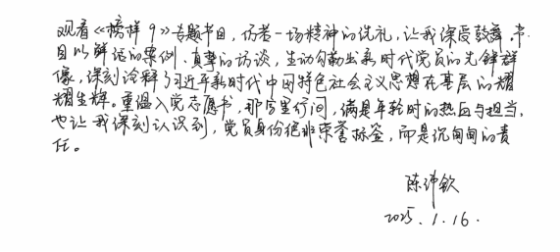 观看《榜样9》专题节目，仿若一场精神的洗礼，让我深受鼓舞，节
目以鲜活的案例、真挚的访谈，生动勾勒出新时代党员的先锋群
像，深刻诠释了习近平新时代中国特色社会主义思想在基层的耀
耀生辉。重温入党志愿书，那字里行间，满是年轻时的热血与担当，
也让我深刻认识到，党员身份绝非荣誉标签，而是沉甸甸的责
任。
陈沛钦
2025.1.16.